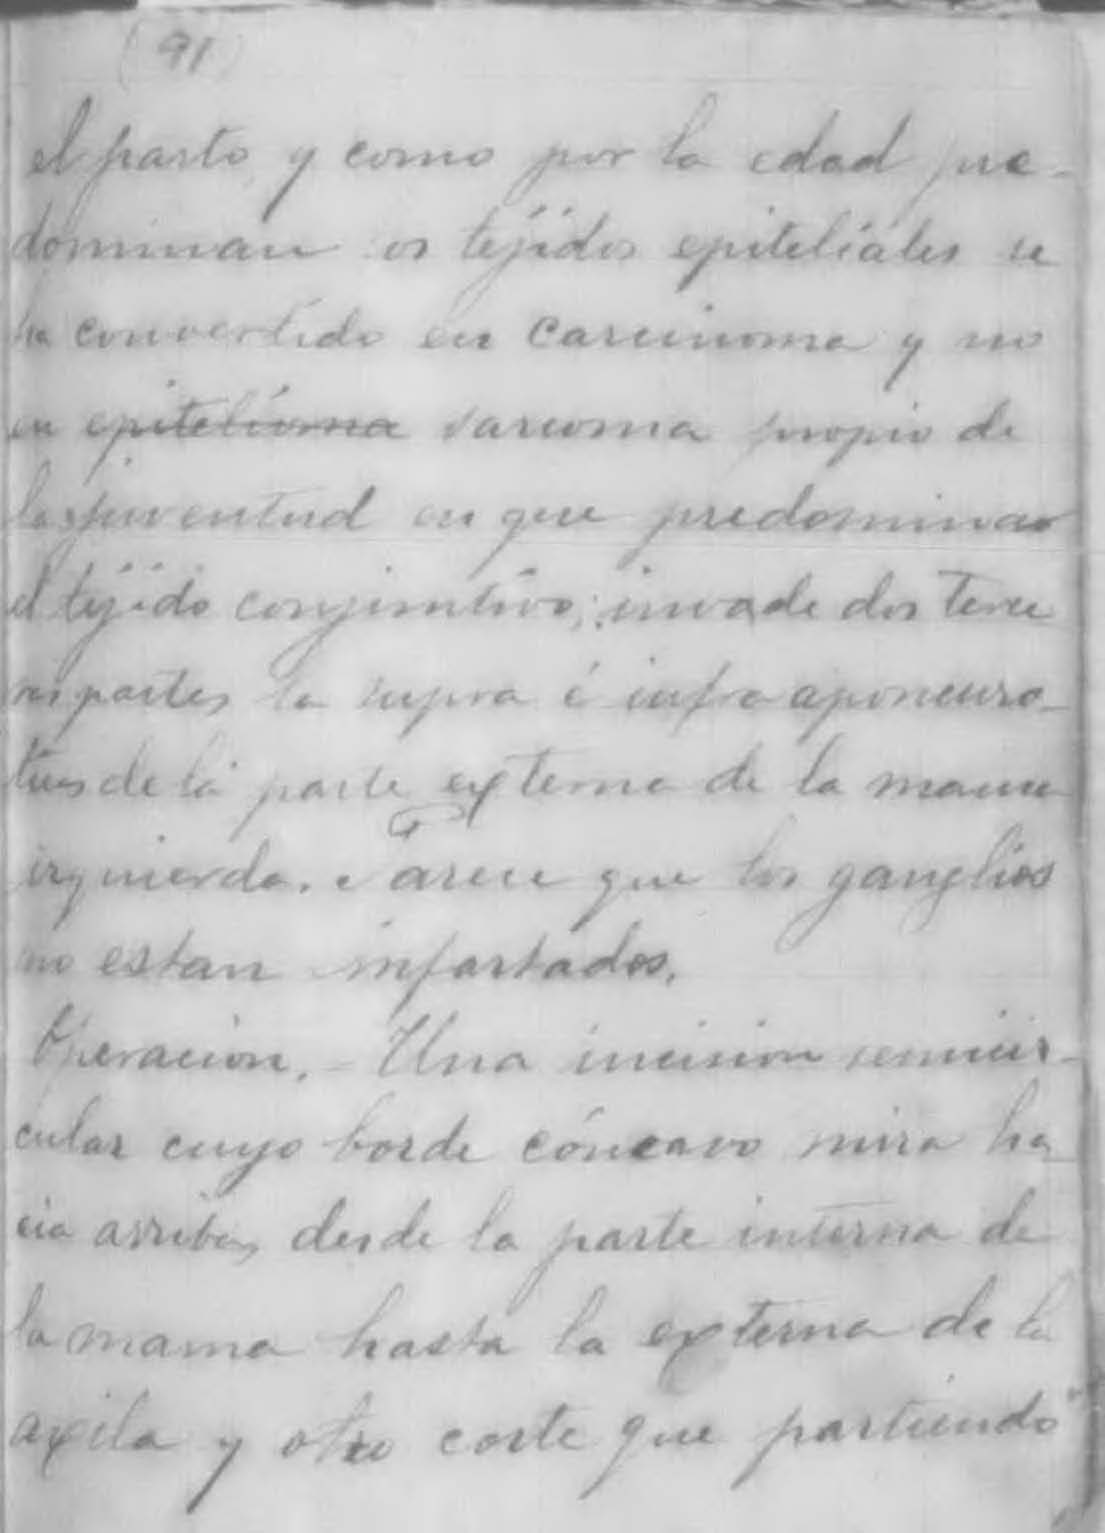 (91)
el parto, y como por la edad pre-
dominan os tejidos epiteliales se
ha convertido en carcinoma y no
en epitelioma sarcoma propio de
la juventud en que predomina
el tejido conjuntivo; invade dos terce
ras partes la supra é infra aponeuro-
ticas de la parte externa de la mama
izquierda. Parece que los ganglios
no estan infartados.
Operacion. - Una incision semicir-
cular cuyo borde cóncavo mira ha-
cia arriba, desde la parte interna de
la mama hasta la externa de la
axila y otro corte que partiendo